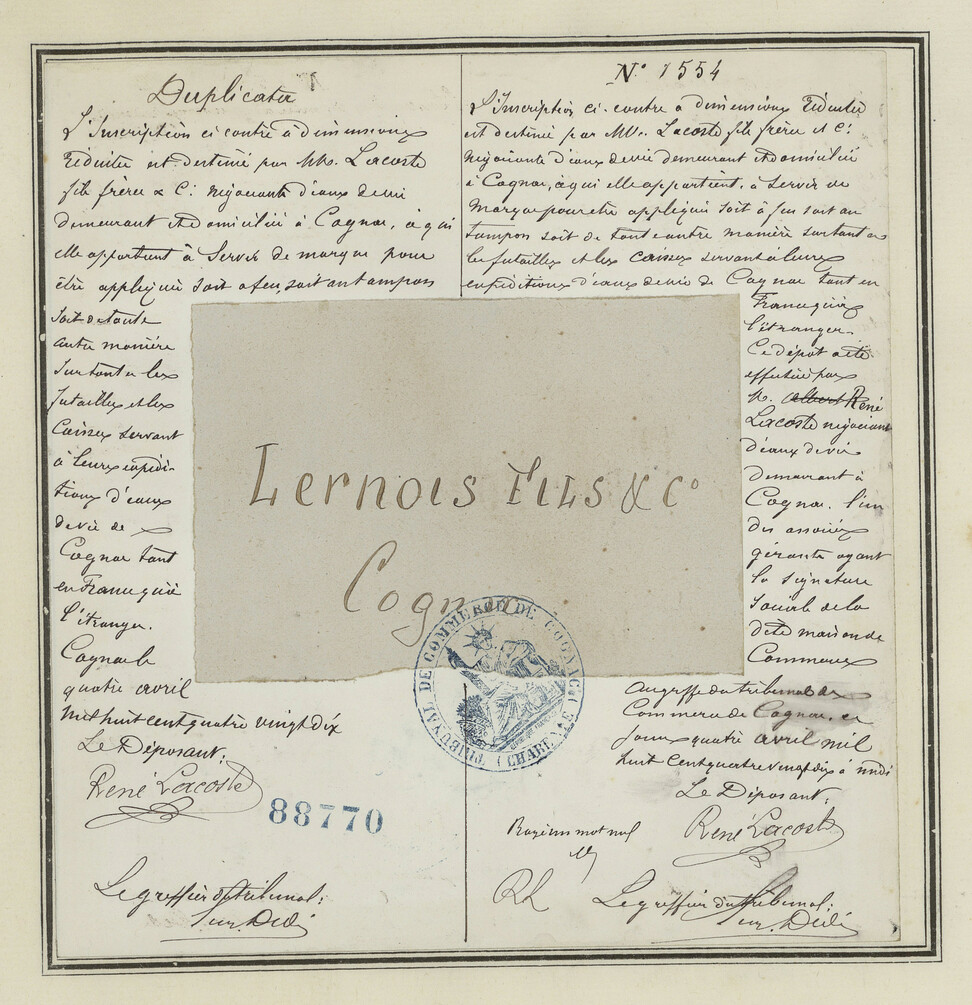 Duplicata
L'Inscription ci contre à dimensions
réduites est destinée par MM. Lacoste
fils frère & Cie négociants d'eaux de vie
demeurant et domiciliés à Cognac, à qui
elle appartient à servir de marque pour
être appliquée soit à feu, soit au tampon
soit de toute
autre manière
surtout les
futailles et les
Caisses servant
à leurs expédi-
tions d'eaux
de vie de
Cognac tant
en France qu'à
l'étranger.
Cognac le
quatre avril
mil huit cent quatre vingt dix
Le Déposant:
René Lacoste
88770
Le greffier du tribunal:
N° 1554
L'Inscription ci-contre à dimensions réduites
est destinée par MM. Lacoste fils frère et Cie
négociants d'eaux de vie demeurant et domiciliés
à Cognac, à qui elle appartient, à servir de
marque pour être appliquée soit à feu soit au
tampon soit de toute autre manière surtout
les futailles et les caisses servant à leurs
expéditions d'eaux de vie de Cognac tant en
France qu'à
l'étranger.
Ce dépôt a été
effectué par
M. Albert René
Lacoste négociant
d'eaux de vie
demeurant à
Cognac, l'un
des associés
gérants ayant
la signature
sociale de la
dite maison de
Commerce
Au greffe du tribunal de
Commerce de Cognac, ce
jour quatre avril mil
huit cent quatre vingt dix à midi
Le Déposant:
René Lacoste
Rayé un mot nul
RL
Le greffier du tribunal:
Lernois Fils & Co
Cogn
TRIBUNAL DE COMMERCE DE COGNAC (CHARENTE)